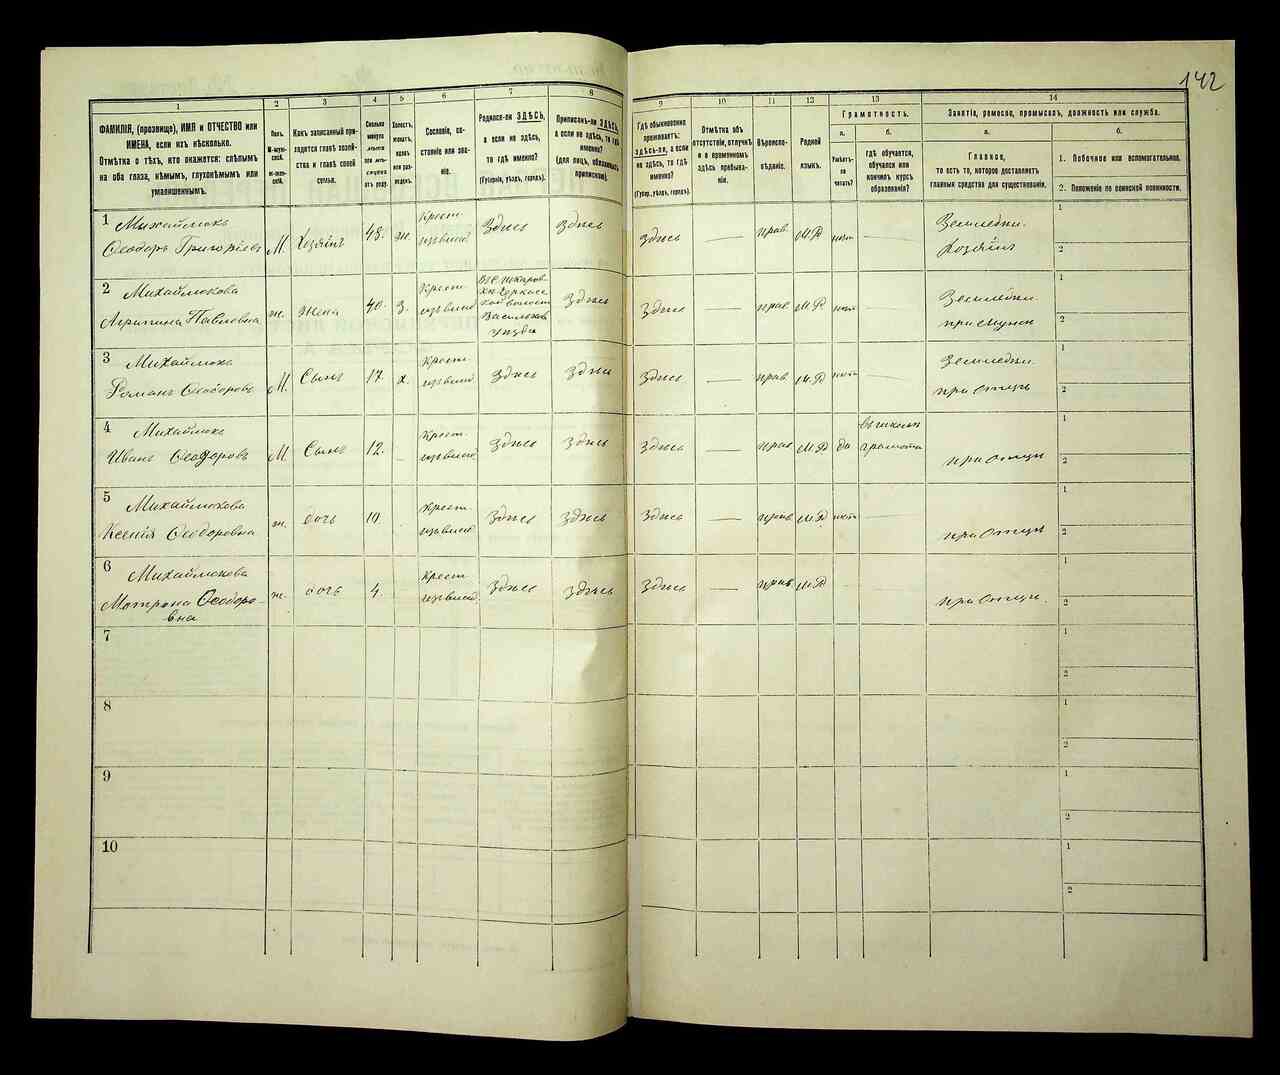 142
1
2
3
4
5
6
7
8
9
10
11
12
13
14
ФАМИЛІЯ, (прозвище), ИМЯ и ОТЧЕСТВО или
ИМЕНА, если их нѣсколько.
Отмѣтка о тѣхъ, кто окажется: слѣпымъ
на оба глаза, нѣмымъ, глухонѣмымъ или
умалишеннымъ.
Полъ.
М-муж-
ской.
ж-жен-
скій.
Какъ записанный при-
ходится главѣ хозяй-
ства и главѣ своей
семьи.
Сколько
минуло
лѣтъ
или мѣ-
сяцевъ
отъ роду.
Холостъ,
женатъ,
вдовъ
или раз-
веденъ.
Сословіе, со-
стояніе или зва-
ніе.
Родился-ли ЗДѢСЬ,
а если не здѣсь,
то гдѣ именно?
(Губернія, уѣздъ, городъ).
Приписанъ-ли ЗДѢСЬ,
а если не здѣсь, то гдѣ
именно?
(для лицъ, обязанныхъ
припискою).
Гдѣ обыкновенно
проживаетъ:
здѣсь-ли, а если
не здѣсь, то гдѣ
именно?
(Губер., уѣздъ, городъ).
Отмѣтка объ
отсутствіи, отлучкѣ
и о временномъ
здѣсь пребыва-
ніи.
Вѣроиспо-
вѣданіе.
Родной
языкъ.
Грамотность.
а.
Умѣетъ-
ли
читать?
б.
гдѣ обучается,
обучался или
кончилъ курсъ
образованія?
Занятіе, ремесло, промыселъ, должность или служба.
а.
Главное,
то есть то, которое доставляетъ
главныя средства для существованія.
б.
1. Побочное или вспомогательное.
2. Положеніе по воинской повинности.
1
Михайлюкъ
Ѳеодоръ Григорьевъ
М
Хозяинъ
48.
ж.
Крест.
Здѣсь
Здѣсь
Здѣсь
—
прав.
М.Р
нѣтъ
—
Земледѣл.
Хозяинъ
1
2
2
Михайлюкова
Агрипина Павловна
ж.
Жена
40.
З.
Крест.
Здѣсь
Здѣсь
—
прав
М Р
нѣтъ
—
Земледѣл.
при мужѣ
1
2
3
Михайлюкъ
Романъ Ѳеодоровъ
М
Сынъ
17.
х.
Крест.
Здѣсь
Здѣсь
Здѣсь
—
прав
М Р
нѣтъ
—
Земледѣл.
при отцѣ
1
2
4
Михайлюкъ
Иванъ Ѳеодоровъ
М
Сынъ
12.
Крест.
Здѣсь
Здѣсь
Здѣсь
—
прав
М Р
да
въ школѣ
грамоты
при отцѣ
1
2
5
Михайлюкова
Ксенія Ѳеодоровна
ж.
дочь
10.
Крест.
Здѣсь
Здѣсь
Здѣсь
—
прав
М Р
нѣтъ
—
при отцѣ
1
2
6
Михайлюкова
Матрона Ѳеодоро-
вна
ж.
дочь
4.
Крест.
Здѣсь
Здѣсь
Здѣсь
—
прав
М Р
при отцѣ.
1
2
7
1
2
8
1
2
9
1
2
10
1
2